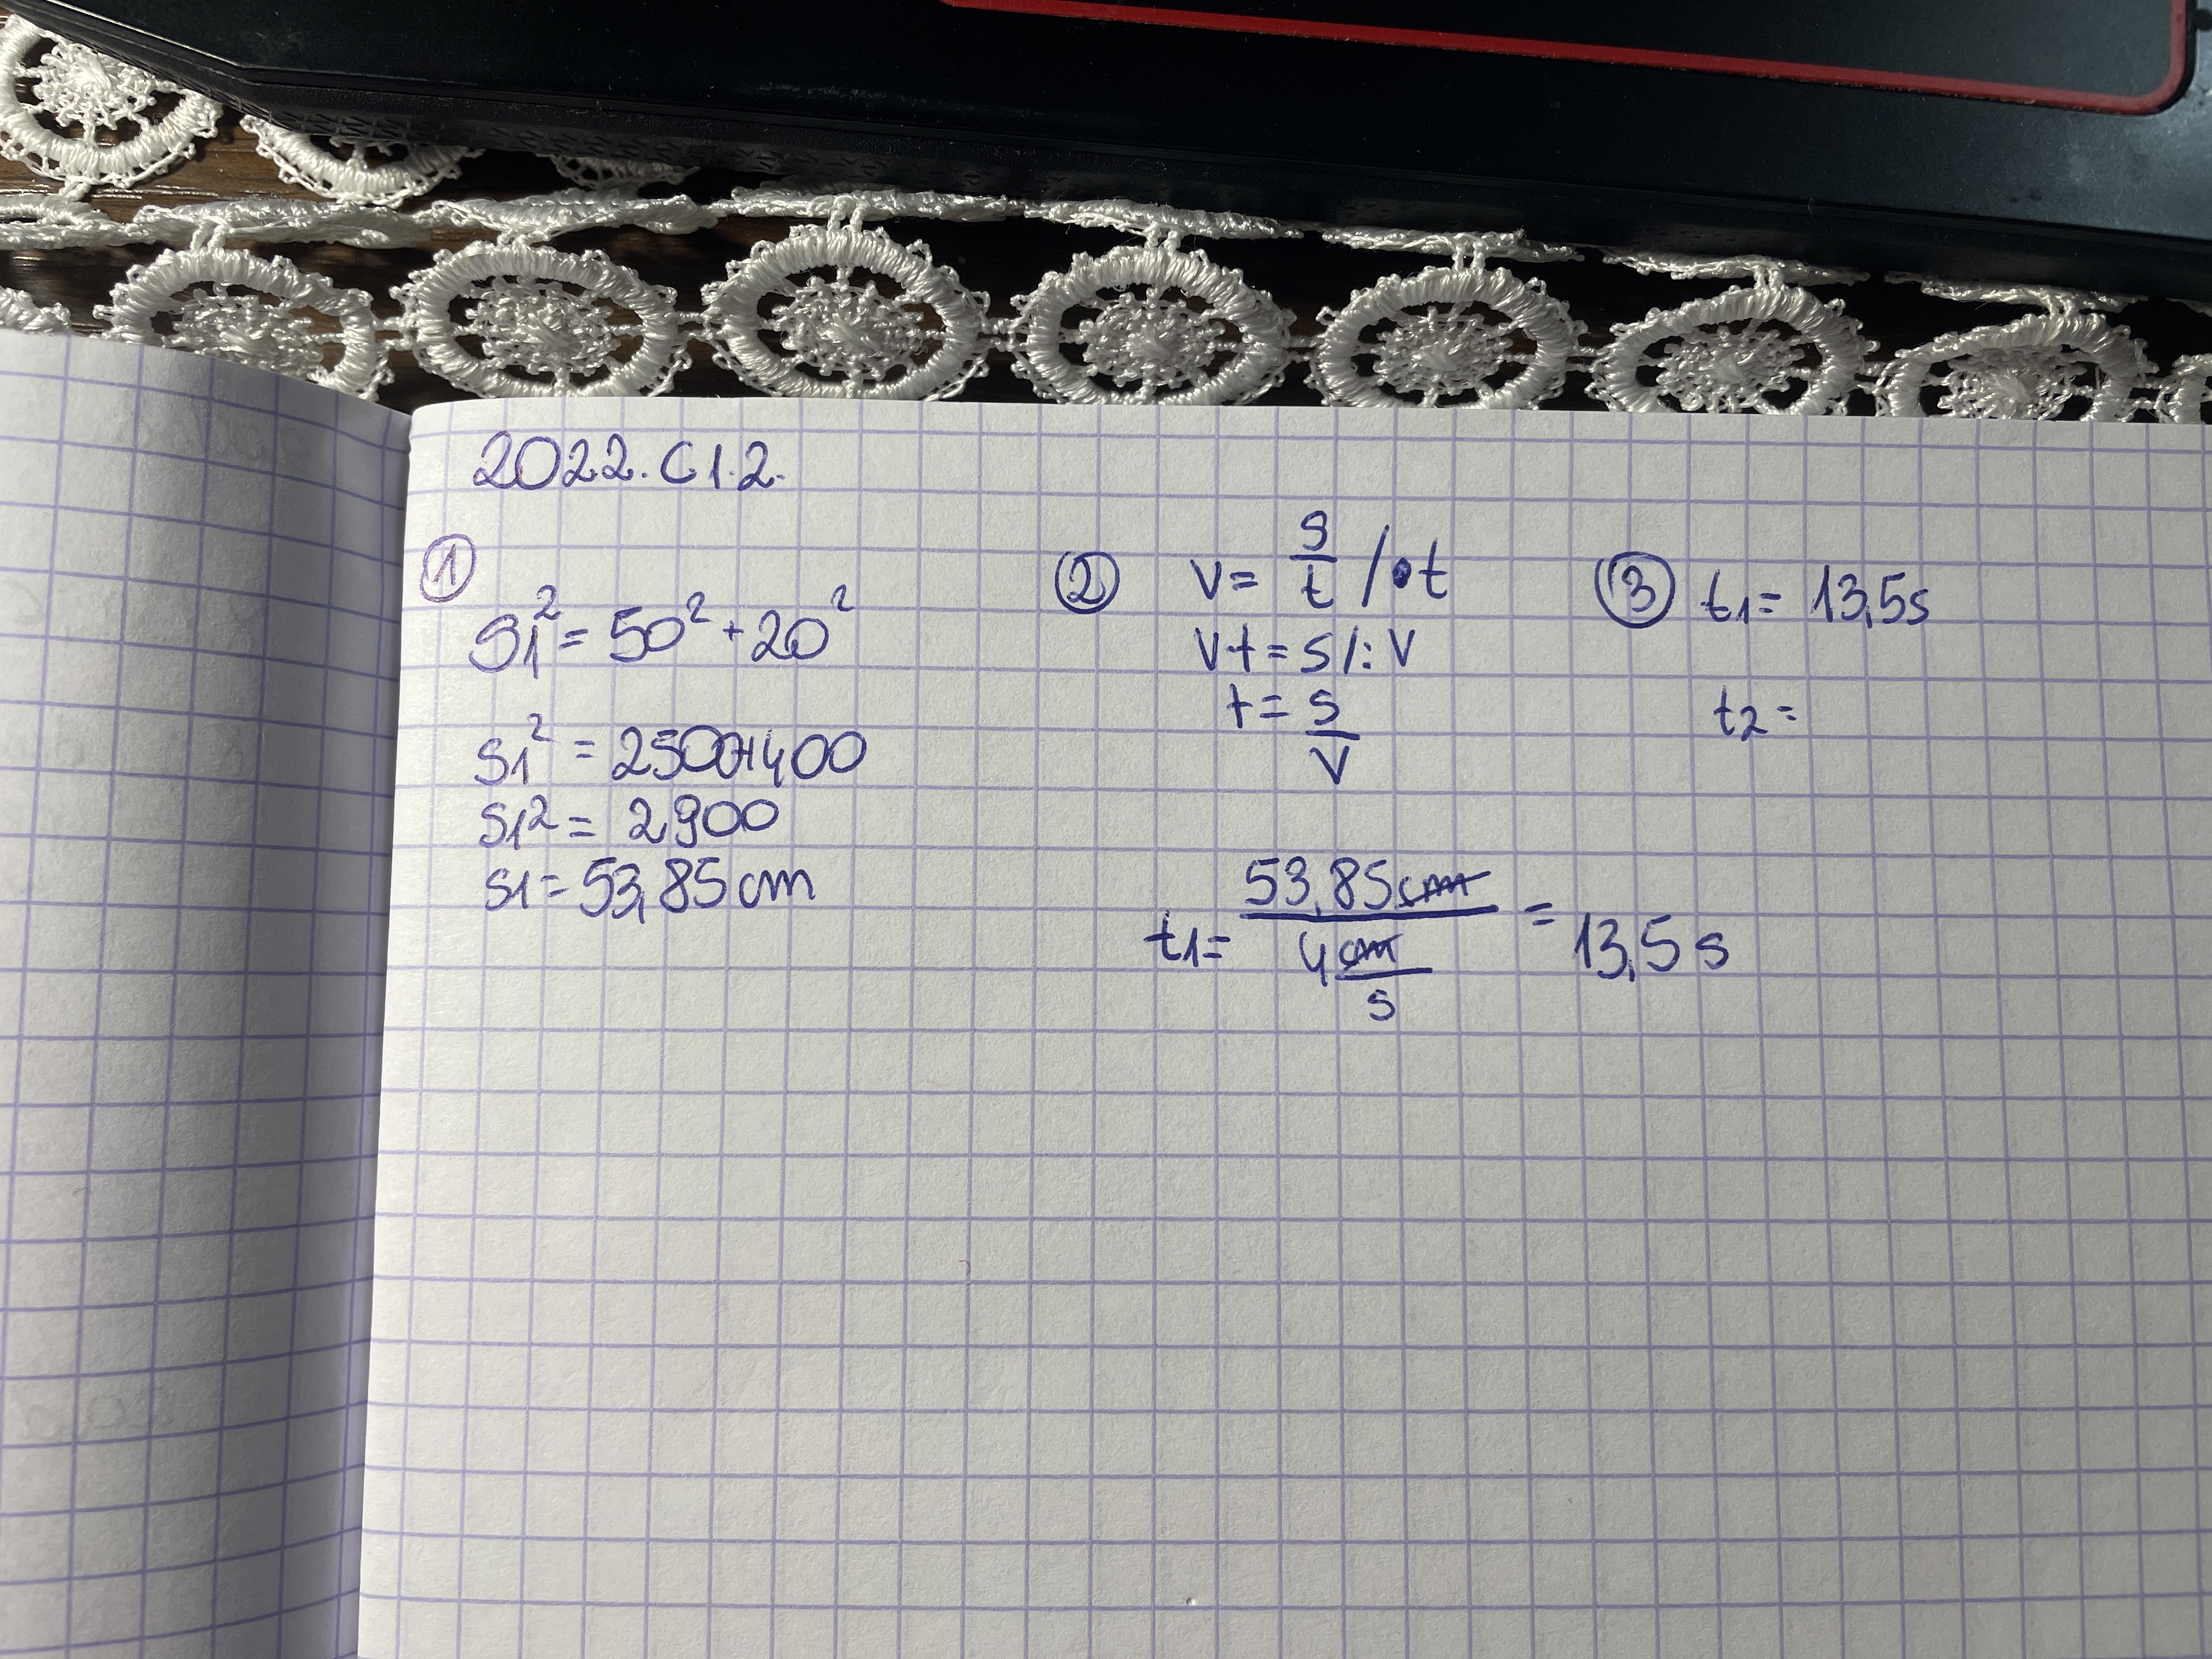 2022.C1.2.
①
S1² = 50² + 20²
S1² = 2500+400
S1² = 2900
S1 = 53,85 cm
②
V = s/t /•t
Vt = s /: V
t = s/V
t1 = 53,85cm / 4 cm/s = 13,5 s
③ t1 = 13,5s
t2 =